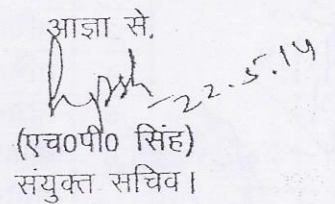 आज्ञा से,
22.5.14
(एच0पी0 सिंह)
संयुक्त सचिव।